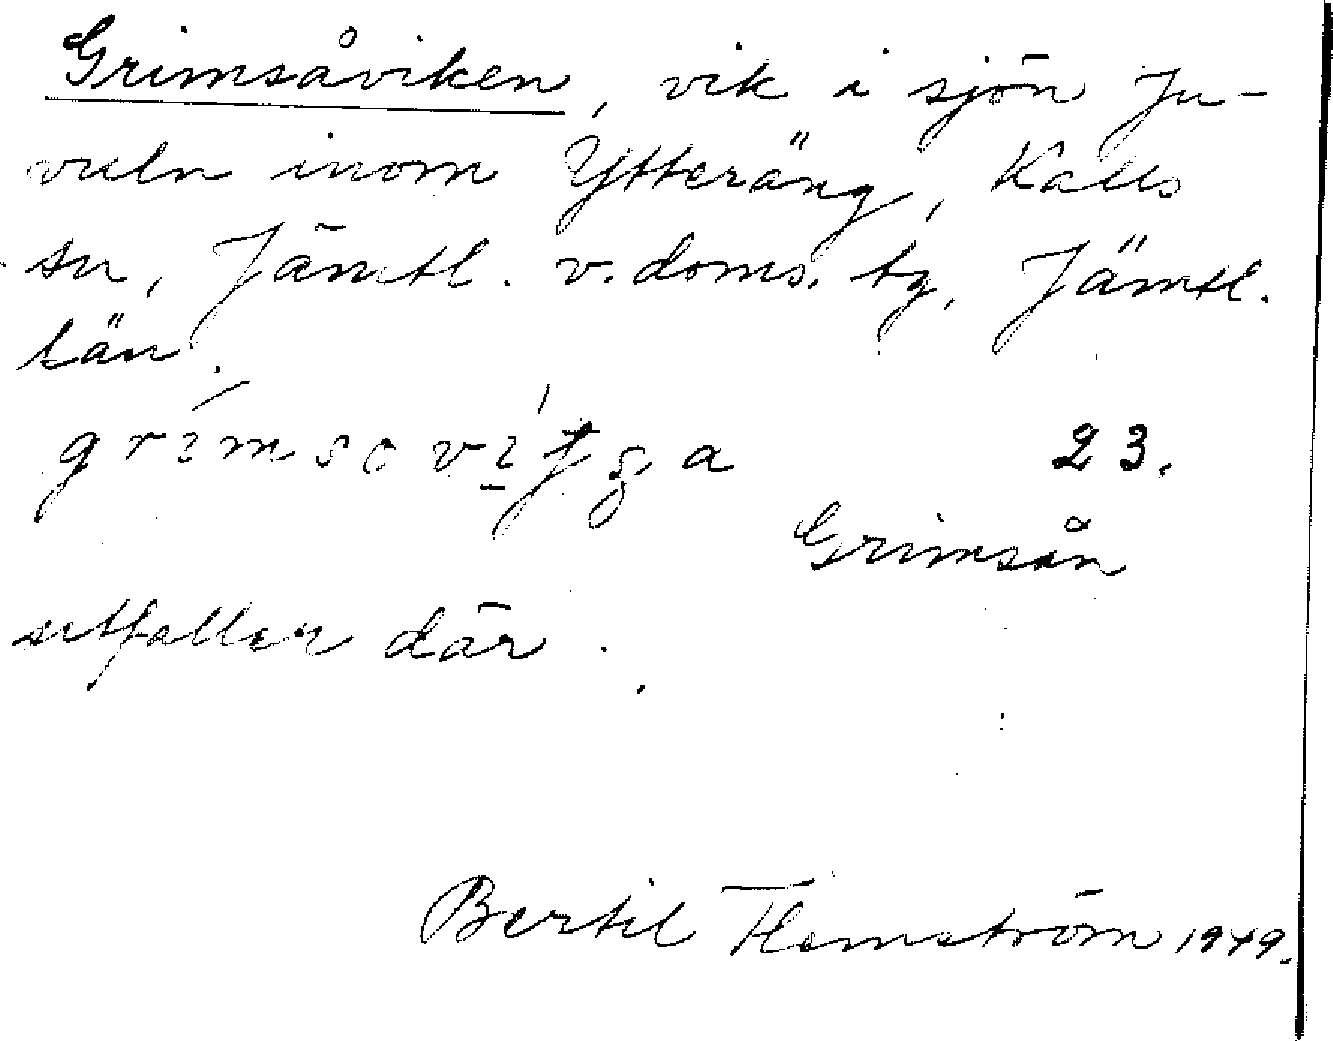 Grimsåviken, vik i sjön Ju-
vuln inom Ytteräng, Kalls
sn, Jämtl. v. doms. tg, Jämtl.
län.
23.
Grimsån
utfaller där.
Bertil Flemström 1949.